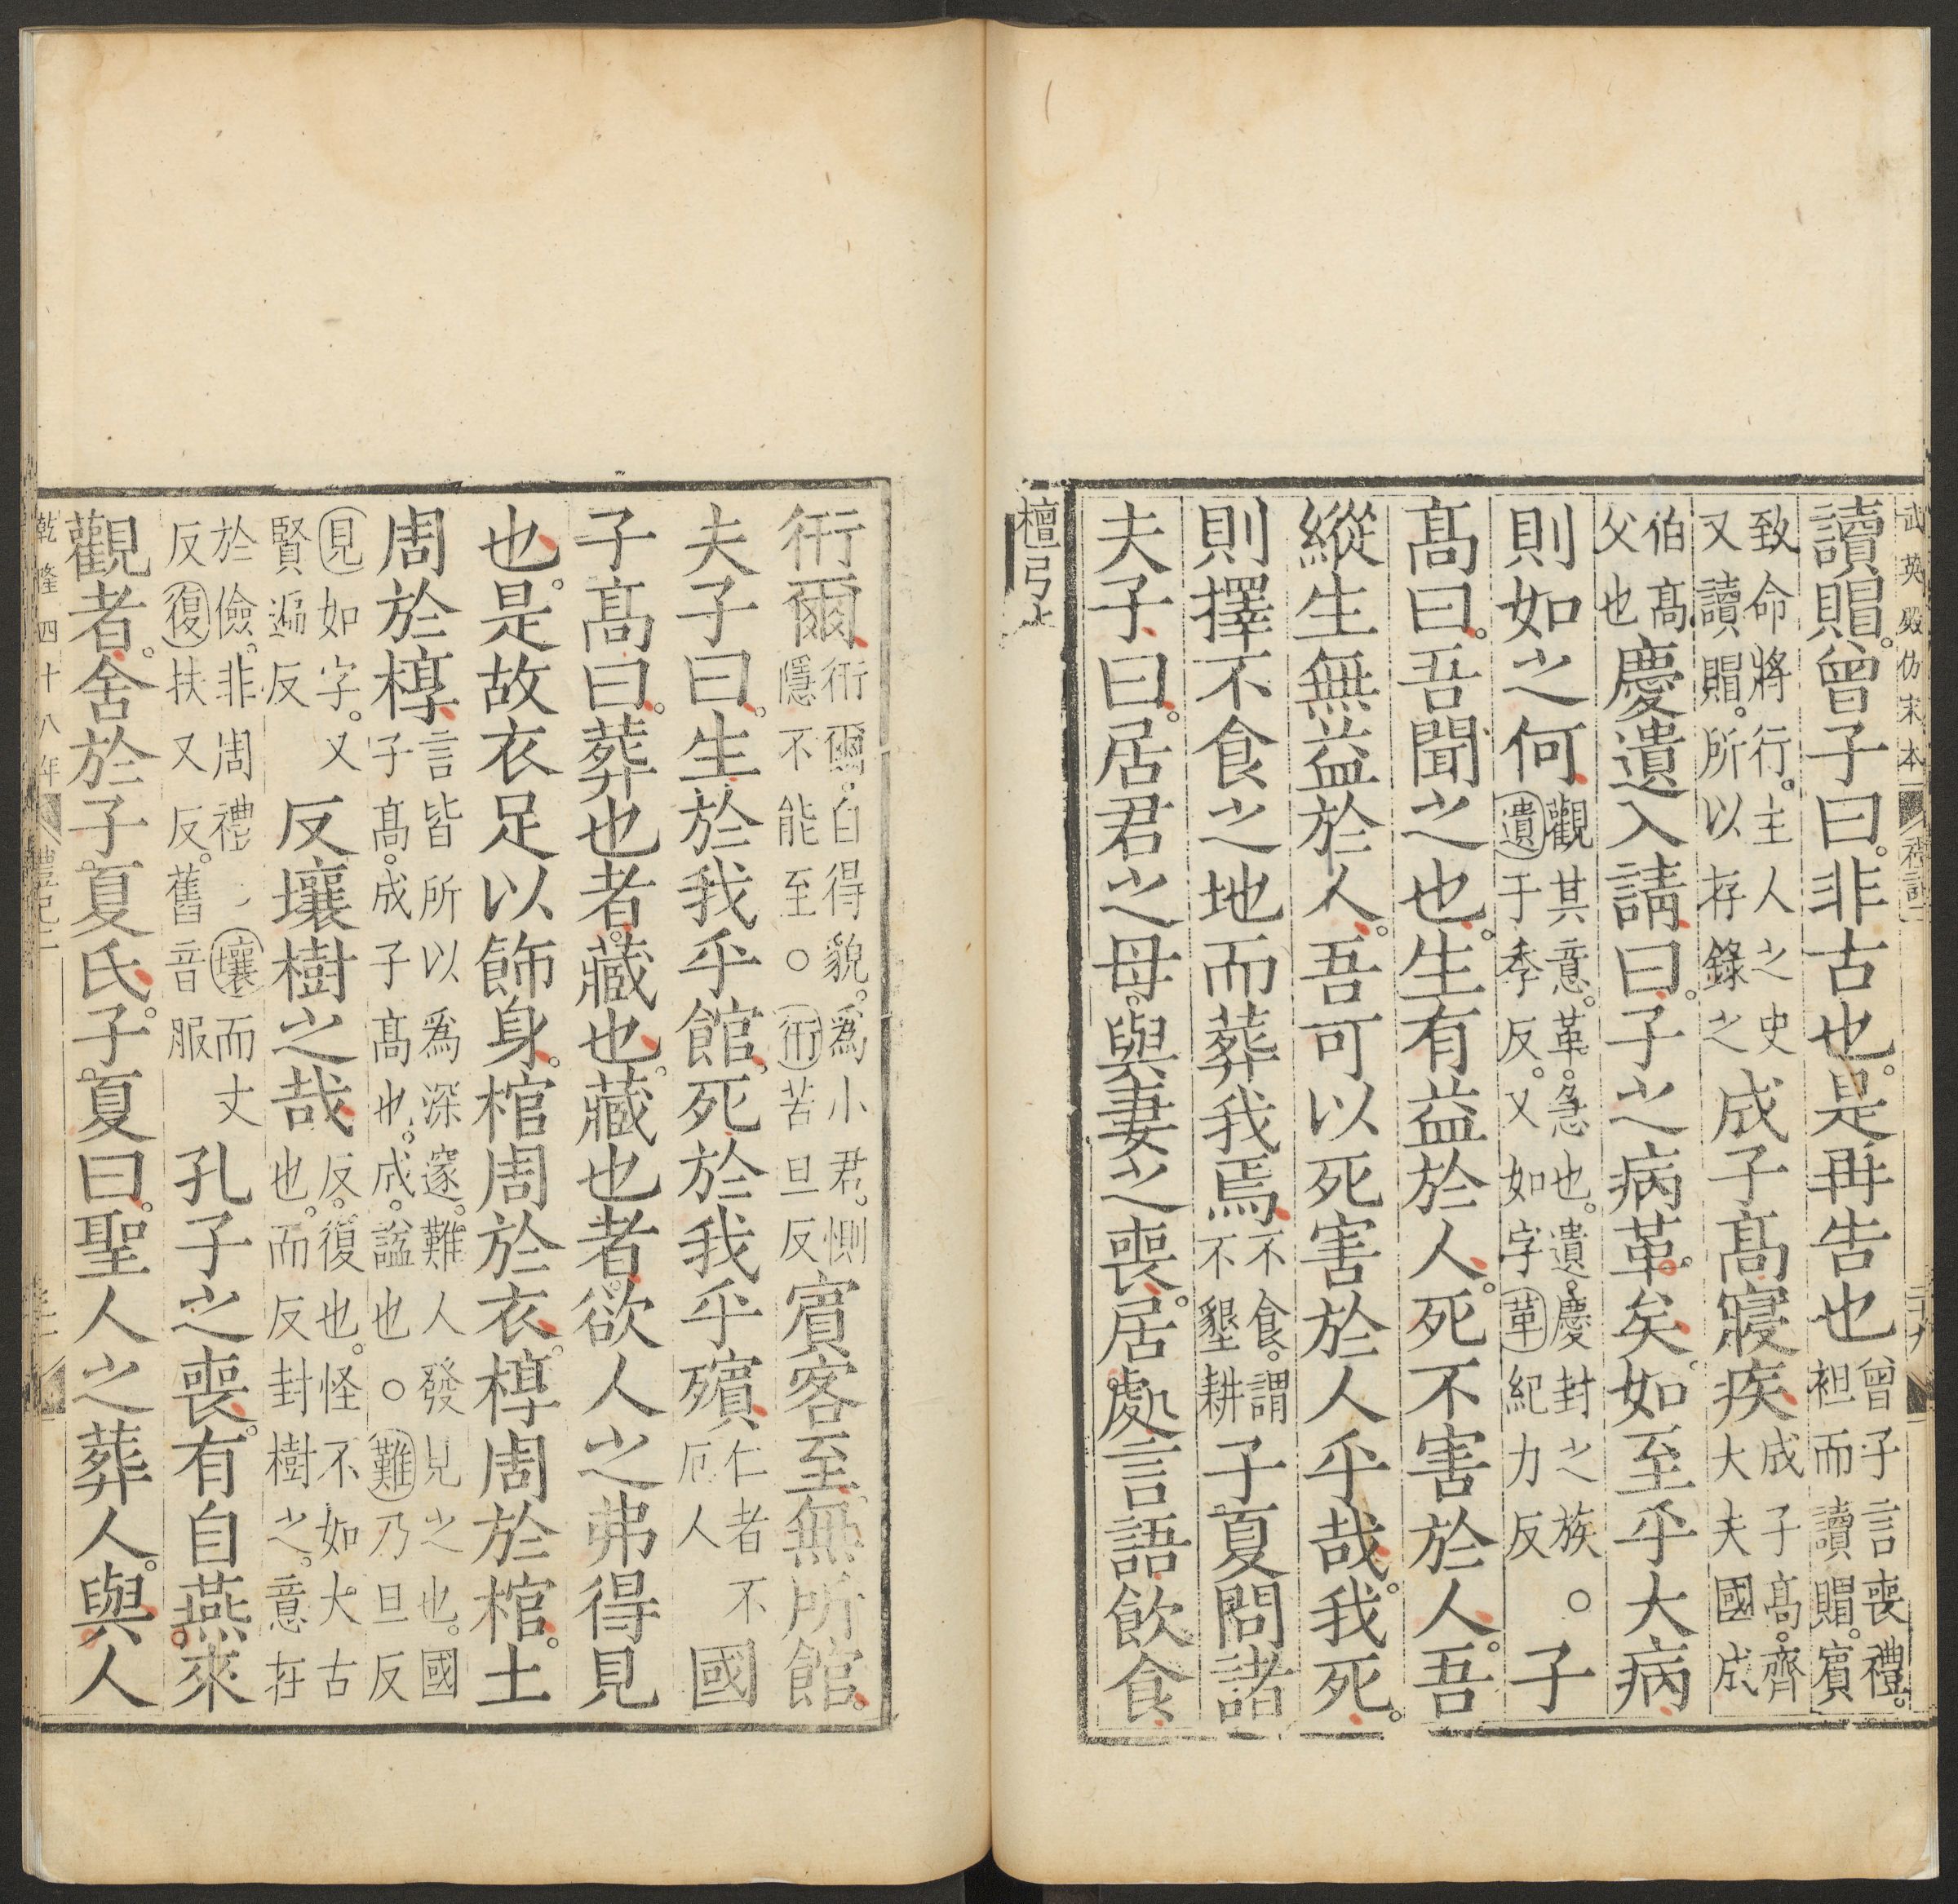 武英殿仿宋本
禮記二
二十九
讀賵。曾子曰。非古也。是再告也曾子言喪禮。袒而讀賵。賓
致命將行。主人之史又讀賵。所以存錄之成子高寢疾成子高。齊大夫國成
伯高父也慶遺入請曰。子之病革。矣。如至乎大病
則如之何觀其意。革。急也。遺。慶封之族○遺于季反。又如字革紀力反子
高曰。吾聞之也。生有益於人。死不害於人。吾
縱生無益於人。吾可以死害於人乎哉。我死。
則擇不食之地而葬我焉不食。謂不墾耕子夏問諸
夫子曰。居君之母。與妻之喪。居。處言語飲食
檀弓上
衎爾衎爾。自得貌。為小君。惻隱不能至○衎苦旦反賓客至。無所館。
夫子曰。生於我乎館。死於我乎殯仁者不厄人國
子高曰。葬也者。藏也。藏也者。欲人之弗得見
也。是故衣足以飾身。棺周於衣。椁周於棺。土
周於椁言皆所以為深邃。難人發見之也。國子高。成子高也。成。謚也○難乃旦反
見如字。又賢遍反反壤樹之哉反。復也。怪不如大古也。而反封樹之。意在
於儉。非周禮壤而丈反復扶又反。舊音服孔子之喪。有自燕來
觀者。舍於子。夏氏。子。夏曰。聖人之葬人。與人
乾隆四十八年
禮記二